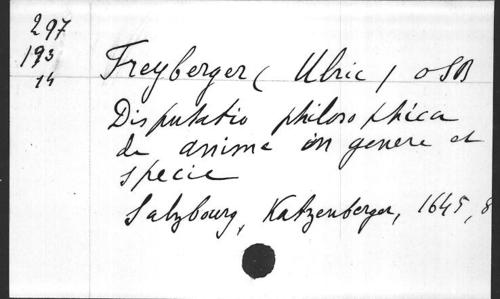 297
193
14
Freyberger ( Ulric ) OSB
Disputatio philosophica
de anima in genere et
specie
Salzbourg, Katzenberger, 1645, 8